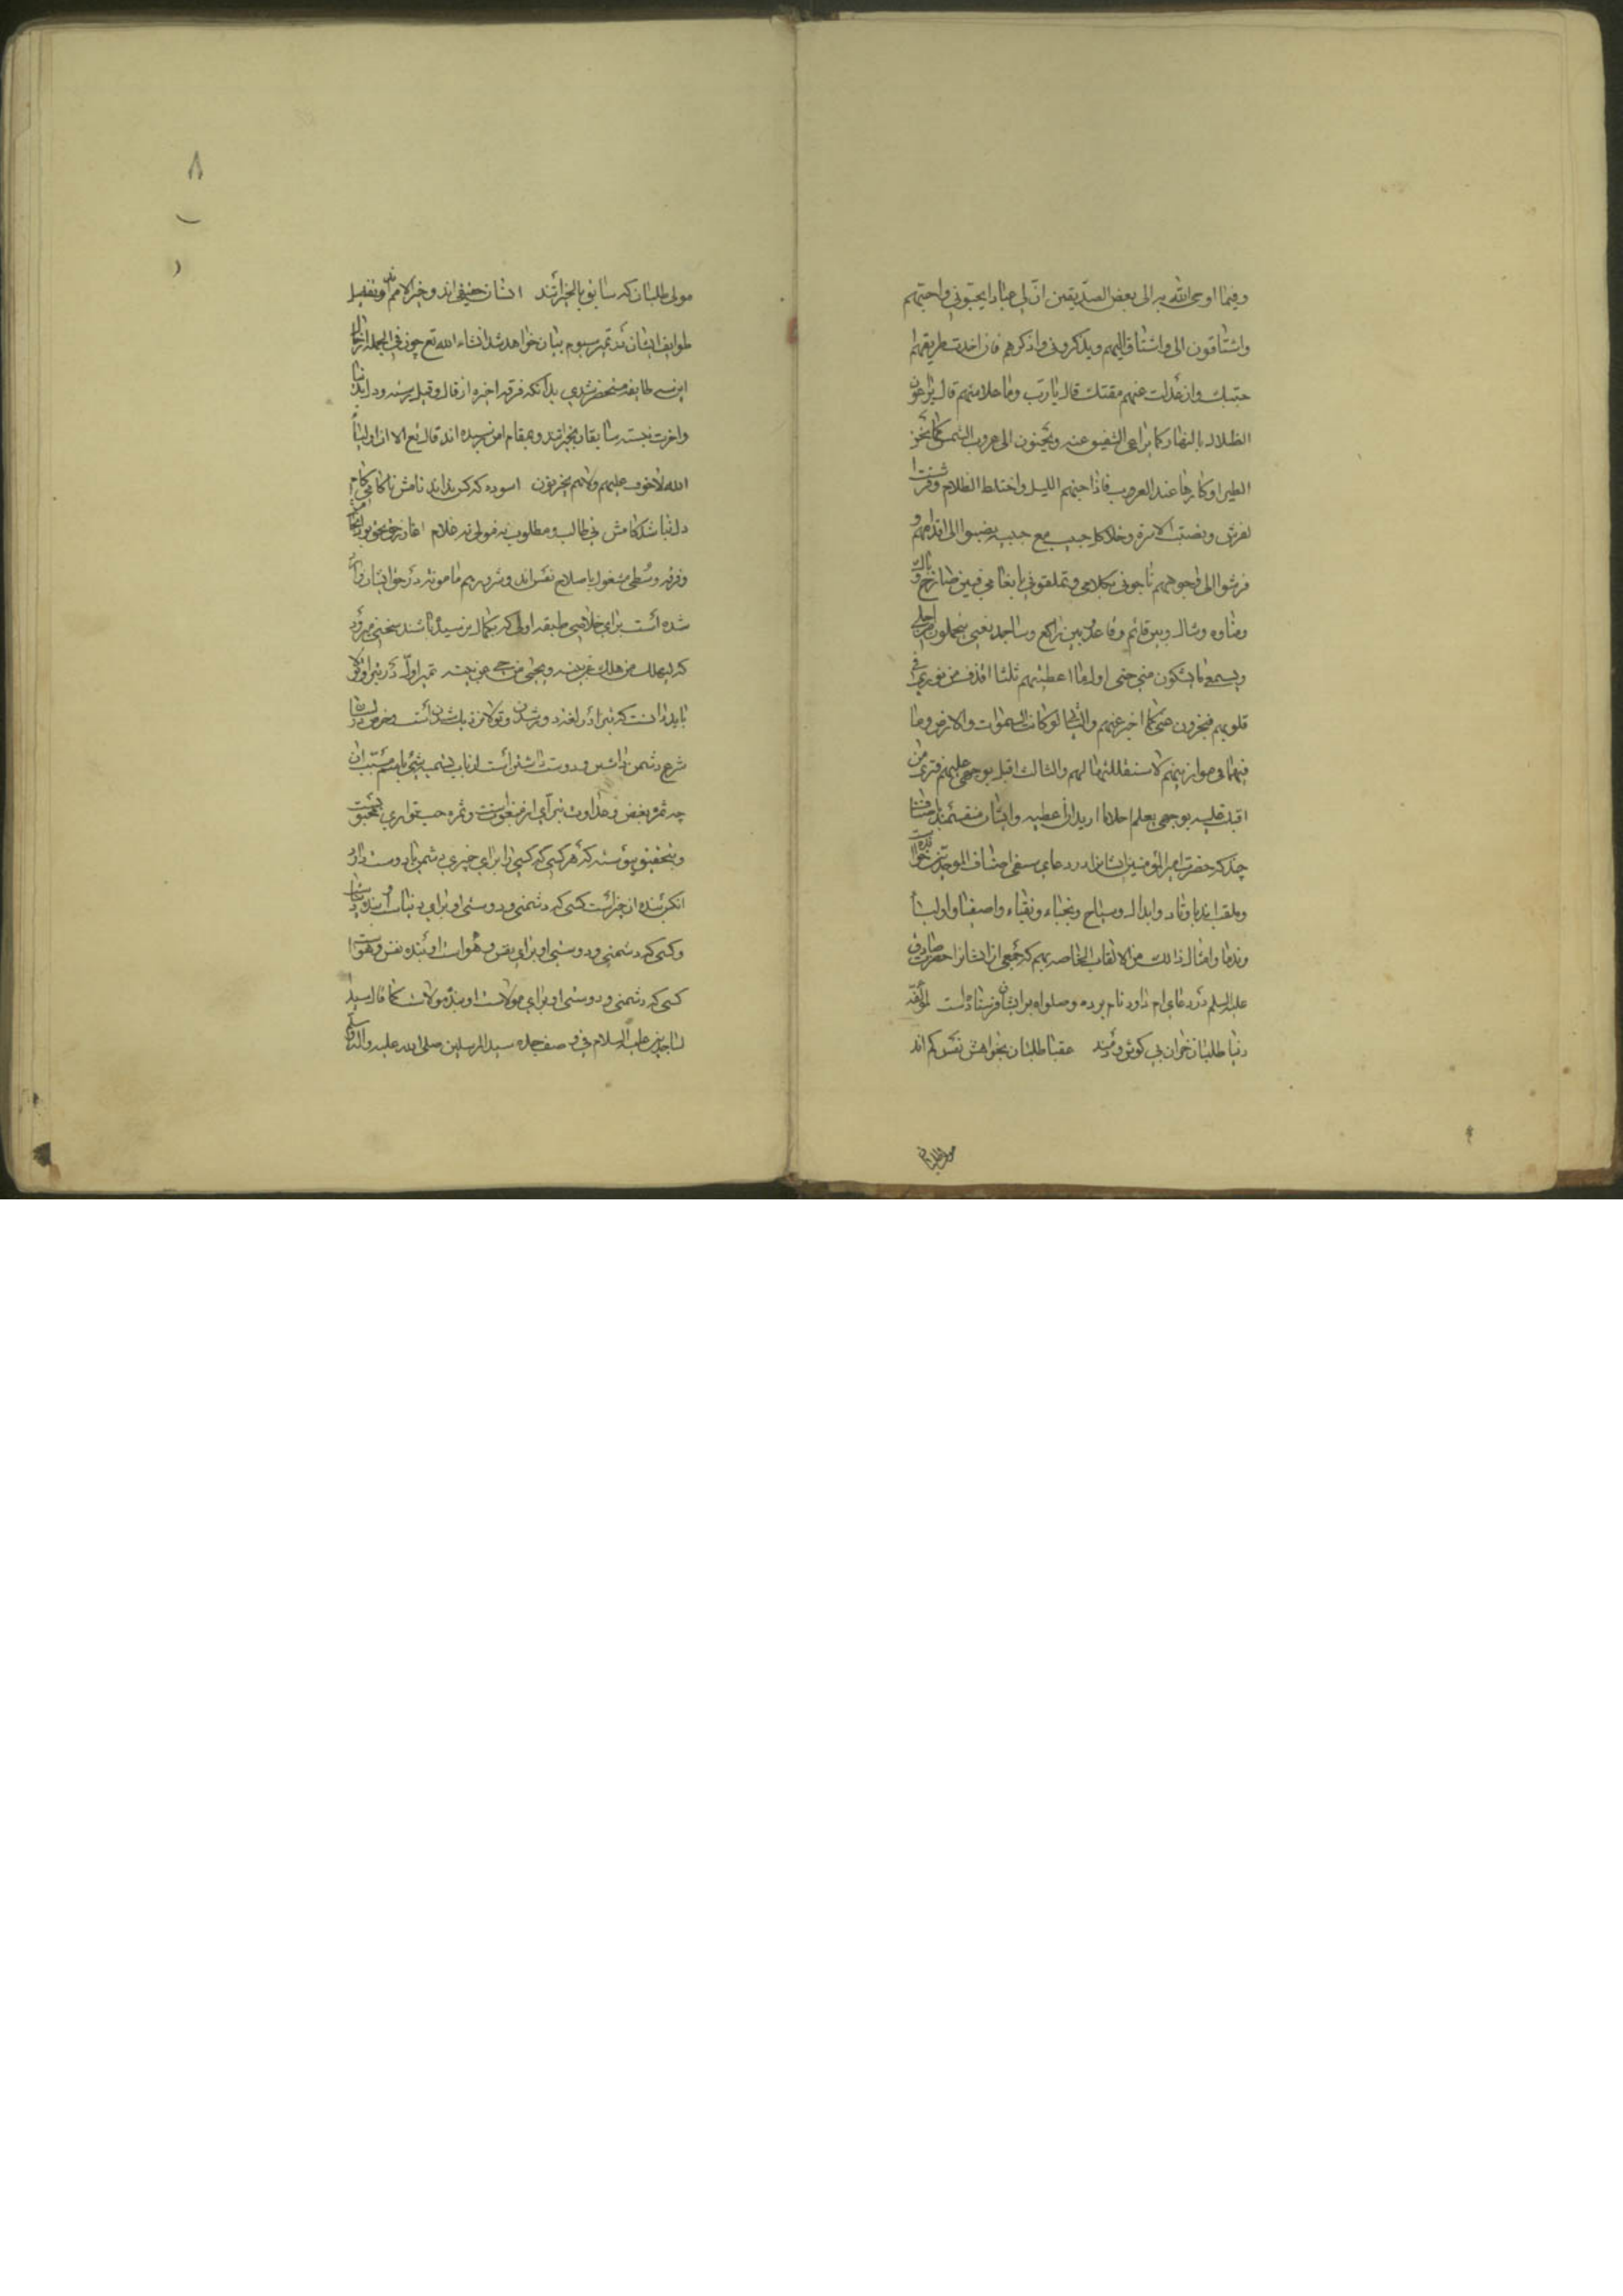 وفیما اوحی الله به الی بعض الصدیقین ان لی عبادا یحبونی واحبهم
واشتاقون الی واشتاق الیهم ویذکرونی واذکرهم فان اخذت طریقهم
حببتک وان عدلت عنهم مقتک قال یا رب وما علامتهم قال یراعون
الظلال بالنهار کما یراعی الشفیق غنمه ویحنون الی غروب الشمس کما تحن
الطیر اوکارها عند الغروب فاذا جنهم اللیل واختلط الظلام وفرشت
لفرش ونصبت الاسرة وخلا کل حبیب مع حبیبه نصبوا الی اقدامهم و
فرشوا الی وجوههم ناجونی بکلامی وتملقونی بانعامی فبین صارخ وباک
ومتاوه وشاک وبین قائم وقاعد وبین راکع وساجد بعینی یتحملون من اجلی
وبسمعی ما یشکون من حبی اول ما اعطیهم ثلثا اقذف من نوری فی
قلوبهم فیخبرون عنی کما اخبر عنهم والثانیا لو کانت السموات والارض وما
فیهما فی موازینهم لاستقللتها لهم والثالث اقبل بوجهی علیهم فتری من
اقبلت علیه بوجهی یعلم احد ما ارید ان اعطیه وایشان منقسمند باصناف
چند که حضرت امیر المؤمنین ایشانرا در دعای سیفی اصناف الموحدین خوانده است
وملقب اند باوتاد وابدال وسیاح ونجباء ونقباء واصفیا واولیاء
وندما وامثال ذالک من الالقاب الخاصه بهم که جمعی از ایشانرا حضرت صادق
علیه السلم در دعای ام داود نام برده وصلواه بر ایشان فرستاده است لمؤلفه
دنیا طلبان خران بی گوش و دمند عقبا طلبان بخواهش نفس کم اند
مولی طلبان
مولی طلبان که سابق بالخیراتند ایشان حنیفی اند وخیر الامم اند وتفصیل
طوایف ایشان در تمهید سیوم بیان خواهد شد انشاء الله تع چون فی الجمله از حال
این سه طایفه مستحضر شدی بدانکه فرقه اخیره از قال وقیل رسته ودر از دنیا
واخرت بجسته سابقان بخیراتند وبمقام امن رسیده اند قال تع الا ان اولیاء
الله لا خوف علیهم ولا هم یحزنون اسوده که کس نداند نامش ناکامی کام
دل نباشد کامش نی طالب ومطلوب نه مولی نه غلام
وفرقه وسطی مشغول باصلاح نفس اند
شده است برای خلاصی طبقه اولی که بکمال نرسیده باشند سخنی میرود
که لیهلک من هلک عن بینه ویحیی من حی عن بینه تمهید اول در تبرا وتولا
باید دانست که تبرا در لغت دور شدن وتولا نزدیک شدن است ودر عرف لسان
شرع دشمن داشتن ودوست داشتن است از باب تسمیه شئ باسم مسبب ان
چه ثمره بغض وعداوت تبرآی از مبغوض است وثمره حب تولای بمحبوب است
وبتحقیق پیوسته که هر کسی که کسی را برای چیزی دشمن یا دوست دارد
انکس بنده ان چیز است کسی که دشمنی ودوستی او برای دنیاست او بنده دنیاست
وکسی که دشمنی ودوستی او برای نفس وهواست او بنده نفس وهواست
کسی که دشمنی ودوستی او برای مولاست او بنده مولاست کما قال سید
لساجدین علیه السلام فی وصف جده سید المرسلین صلی الله علیه واله وسلم